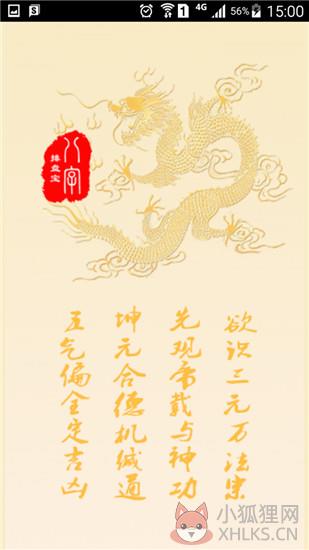 S 1 4G 56% 15:00
八字
排盘宝
欲识三元万法宗
先观帝载与神功
坤元合德机缄通
五气偏全定吉凶
小狐狸网
XHLKS.CN